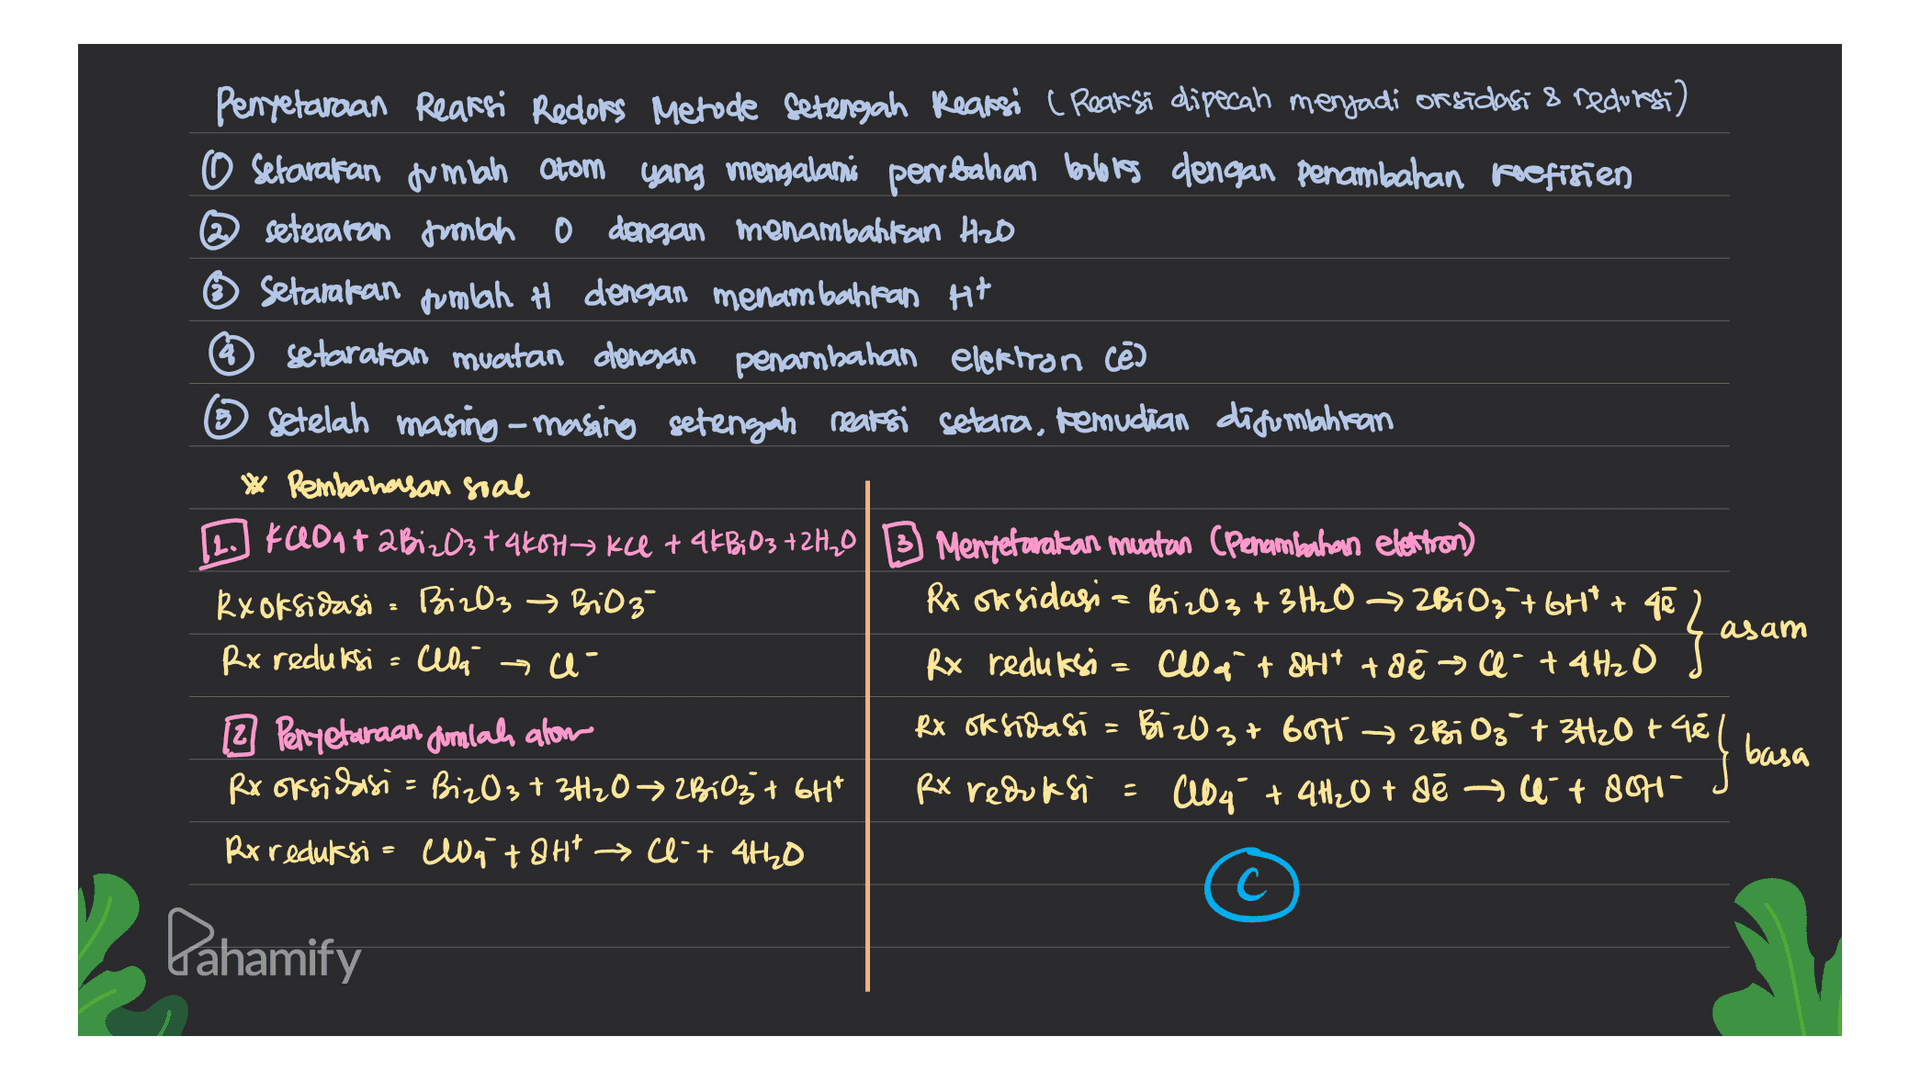 Penyetaraan Reaksi Redoks Metode Setengah Reaksi (Reaksi dipecah menjadi oksidasi & reduksi)
① Setarakan jumlah atom yang mengalami perubahan biloks dengan penambahan koefisien
② seterakan jumlah O dengan menambahkan H₂O
③ Setarakan jumlah H dengan menambahkan H⁺
④ setarakan muatan dengan penambahan elektron (ē)
⑤ Setelah masing-masing setengah reaksi setara, kemudian dijumlahkan
* Pembahasan soal
1. KClO₄ + 2Bi₂O₃ + 4KOH → KCl + 4KBiO₃ + 2H₂O
Rx oksidasi = Bi₂O₃ → BiO₃⁻
Rx reduksi = ClO₄⁻ → Cl⁻
2 Penyetaraan jumlah atom
Rx oksidasi = Bi₂O₃ + 3H₂O → 2BiO₃⁻ + 6H⁺
Rx reduksi = ClO₄⁻ + 8H⁺ → Cl⁻ + 4H₂O
3 Menyetarakan muatan (Penambahan elektron)
Rx oksidasi = Bi₂O₃ + 3H₂O → 2BiO₃⁻ + 6H⁺ + 4ē
Rx reduksi = ClO₄⁻ + 8H⁺ + 8ē → Cl⁻ + 4H₂O
asam
Rx oksidasi = Bi₂O₃ + 6OH⁻ → 2BiO₃⁻ + 3H₂O + 4ē
Rx reduksi = ClO₄⁻ + 4H₂O + 8ē → Cl⁻ + 8OH⁻
basa
C
Pahamify